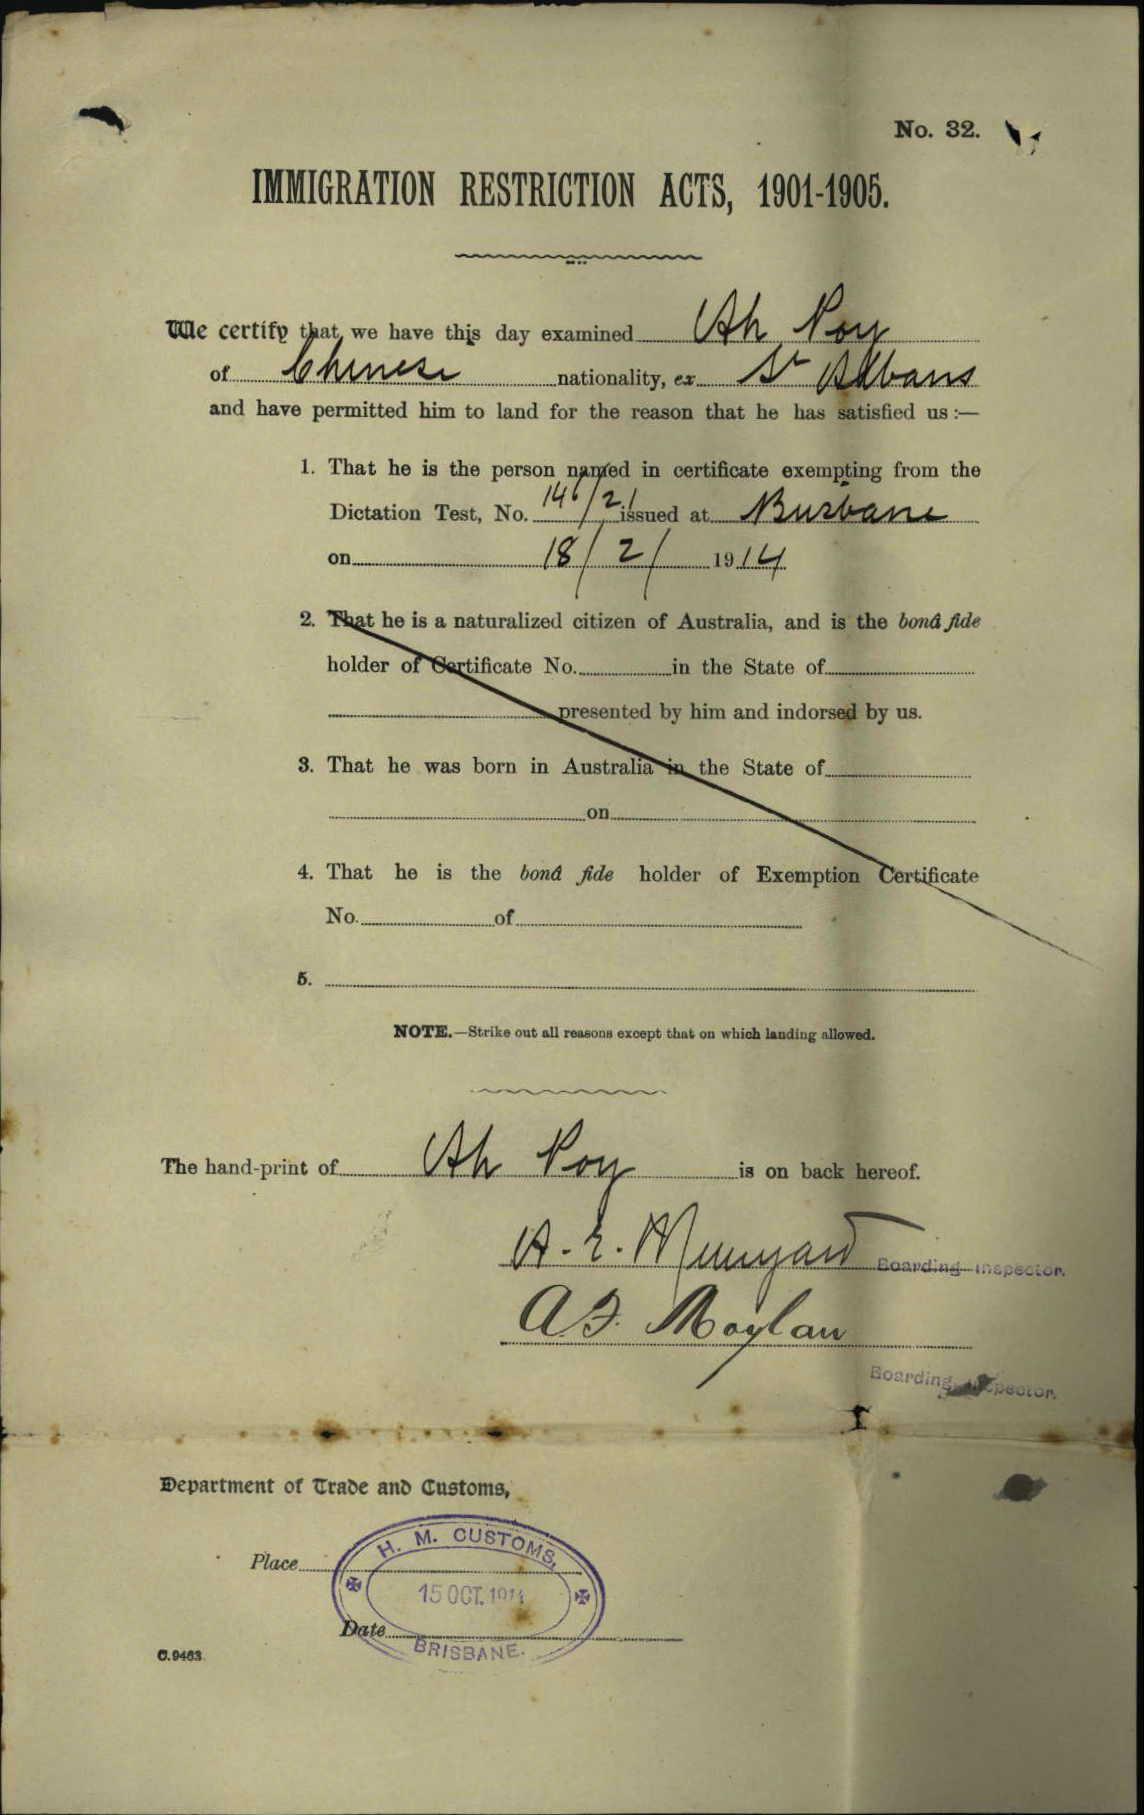 No. 32.
IMMIGRATION RESTRICTION ACTS, 1901-1905.
We certify that we have this day examined Ah Poy
of Chinese nationality, ex St Albans
and have permitted him to land for the reason that he has satisfied us :—
1. That he is the person named in certificate exempting from the
Dictation Test, No. 146/21 issued at Brisbane
on 18/2/1914
2. That he is a naturalized citizen of Australia, and is the bonâ fide
holder of Certificate No. in the State of
presented by him and indorsed by us.
3. That he was born in Australia in the State of
on
4. That he is the bonâ fide holder of Exemption Certificate
No. of
5.
NOTE.—Strike out all reasons except that on which landing allowed.
The hand-print of Ah Poy is on back hereof.
A. E. Munyard Boarding Inspector.
A.F. Moylan
Boarding Inspector.
Department of Trade and Customs,
H. M. CUSTOMS,
Place
15 OCT. 1914
Date
BRISBANE.
C.9463